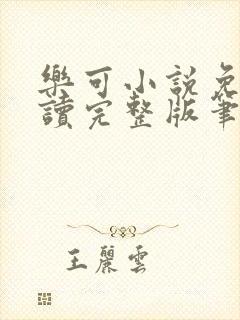 樂可小說免
讀完整版筆
王麗雲